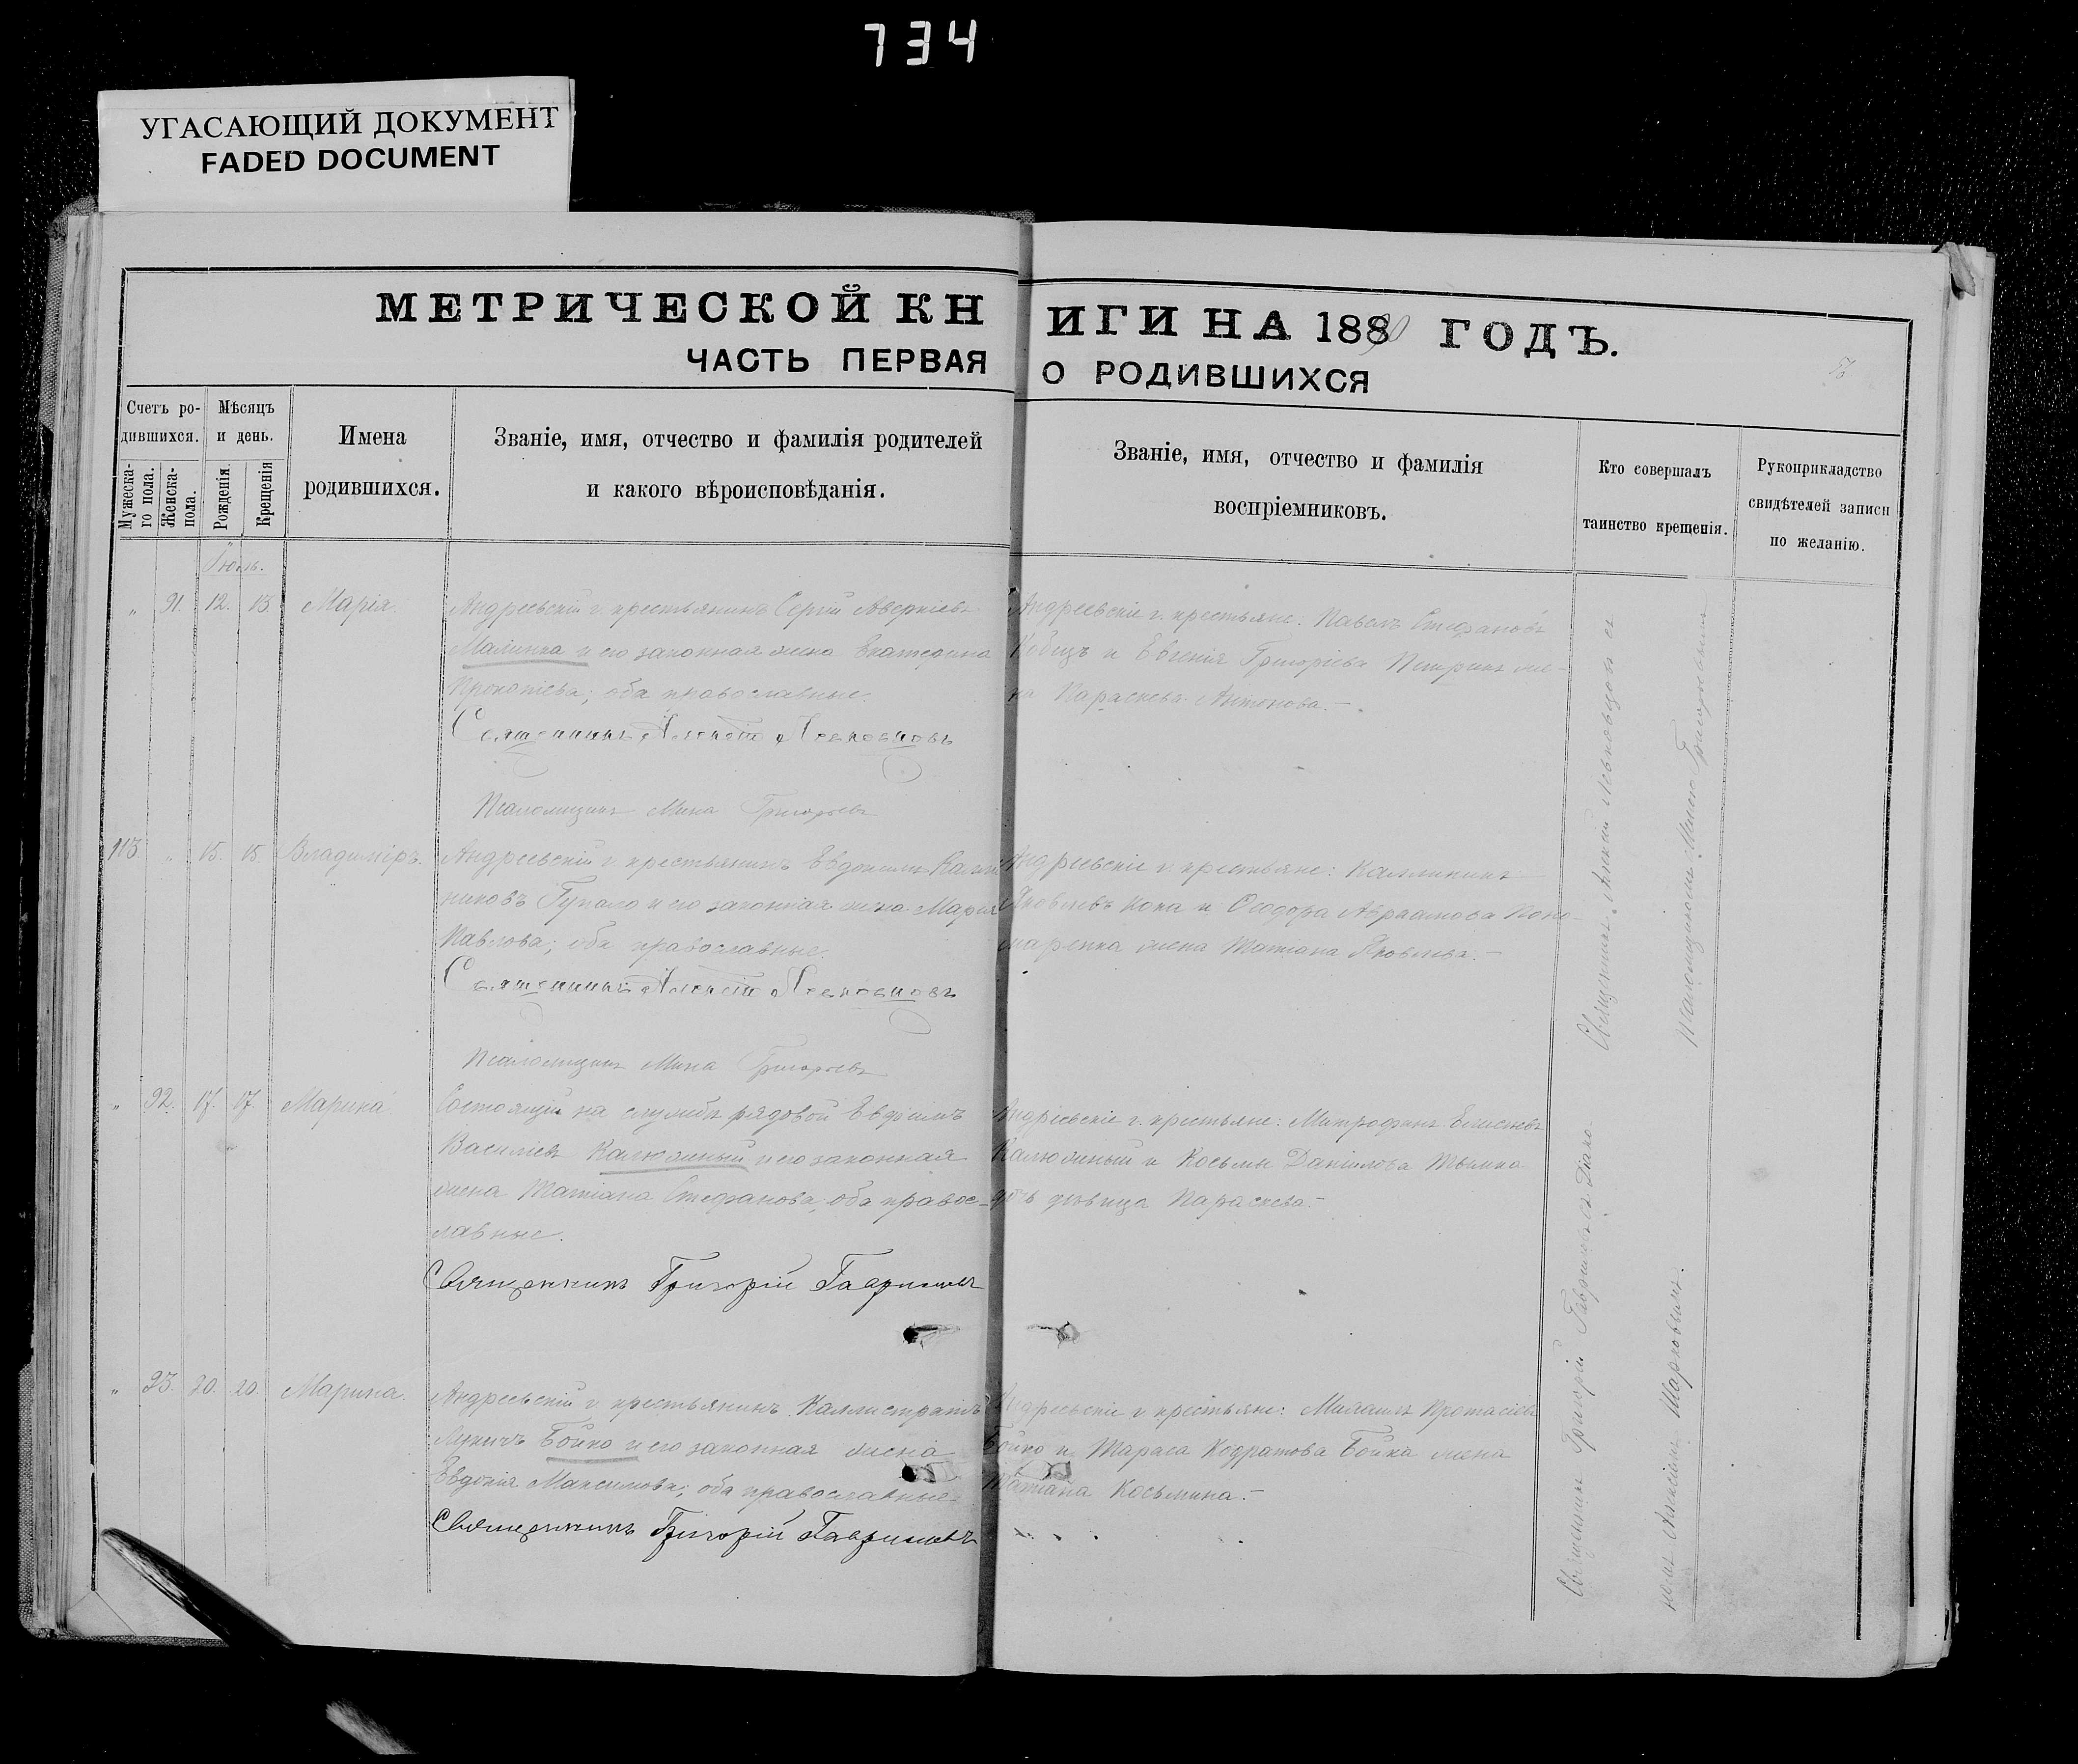 734
УГАСАЮЩИЙ ДОКУМЕНТ
FADED DOCUMENT
МЕТРИЧЕСКОЙ КНИГИ НА 1890 ГОДЪ.
ЧАСТЬ ПЕРВАЯ О РОДИВШИХСЯ
Счетъ ро-
дившихся.
Мужеска-
го пола.
Женска-
пола.
Мѣсяцъ
и день.
Рожденія.
Крещенія
Имена
родившихся.
Званіе, имя, отчество и фамилія родителей
и какого вѣроисповѣданія.
Званіе, имя, отчество и фамилія
воспріемниковъ.
Кто совершалъ
таинство крещенія.
Рукоприкладство
свидѣтелей записи
по желанію.
Іюль.
" 91. 12. 15 Марія
Андреевскій г. крестьянинъ Сергій Аверкіевъ
Малинка и его законная жена Екатерина
Прокопіева; оба православные.
Священникъ Алексій
Псаломщикъ Мина Григорьевъ
Андреевскіе г. крестьяне: Павелъ Стефановъ
и Евгенія Григоріева же-
на Параскева Антонова.—
113. " 15. 15. Владиміръ.
Андреевскій г. крестьянинъ Евдокимъ Калли
никовъ Гупало и его законная жена Марія
Павлова; оба православные.
Священникъ Алексій
Псаломщикъ Мина Григорьевъ
Андреевскіе г. крестьяне: Каллиникъ
Яковлевъ Кока и Ѳеодора Авраамова Поно-
маренка жена Татіана Яковлева.—
" 92. 17. 17. Марина
Состоящій на службѣ рядовой Евфимъ
Василіевъ Калюжный и его законная
жена Татіана Стефанова; оба правос-
лавные.
Священникъ Григорій Гавриловъ
Андреевскіе г. крестьяне: Митрофанъ Елисеевъ
Калюжный и Косьмы Даніилова
дочь дѣвица Параскева.—
" 93. 20. 20. Марина.
Андреевскій г. крестьянинъ Каллистратъ
Лукичъ Бойко и его законная жена
Евдокія Максимова; оба православные.
Священникъ Григорій Гавриловъ
Андреевскіе г. крестьяне: Михаилъ Протасіевъ
Бойко и Тараса Кодратова Бойка жена
Татіана Косьмина.—
Священникъ Алексій съ
Псаломщикомъ Миною Григорьевымъ
Священникъ Григорій Гавриловъ съ Діако-
номъ Алексіемъ Марковымъ.